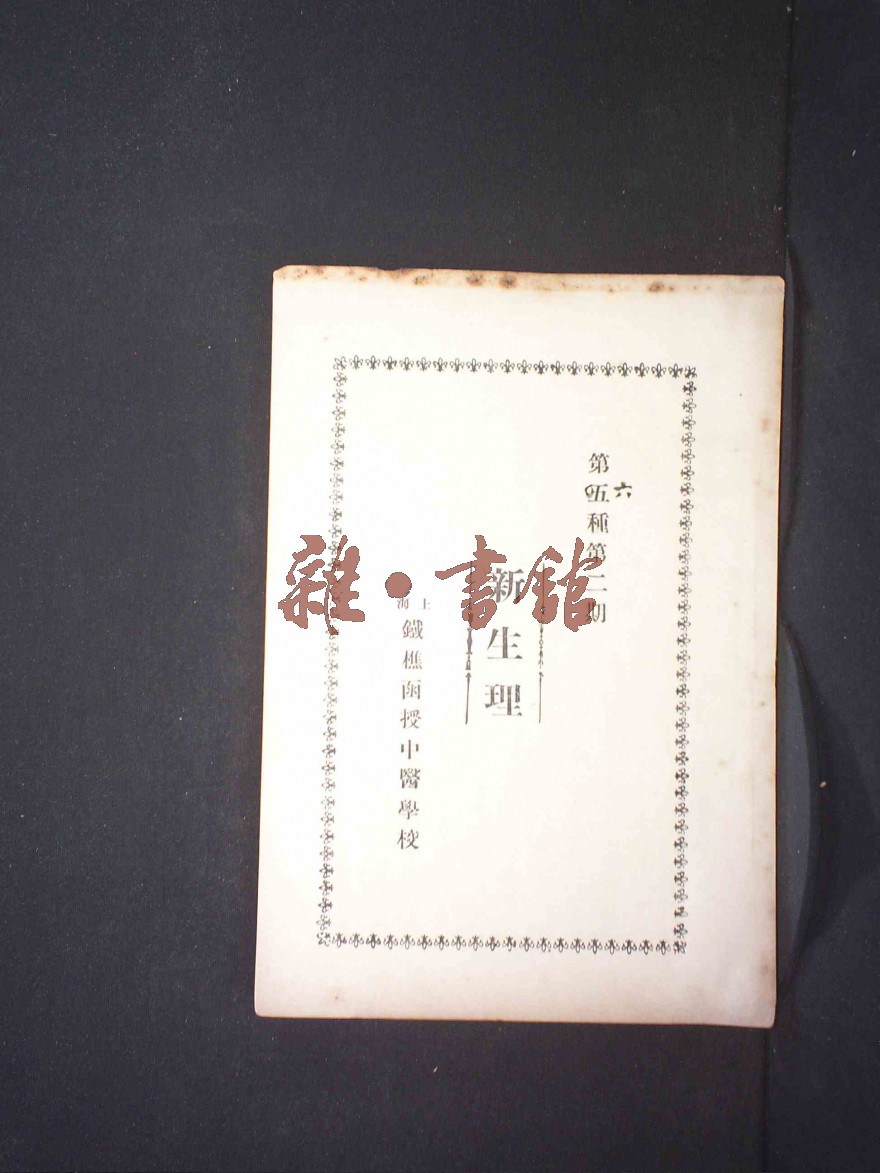 第五種第二期
六
新生理
上海
鐵樵函授中醫學校
雜·書館